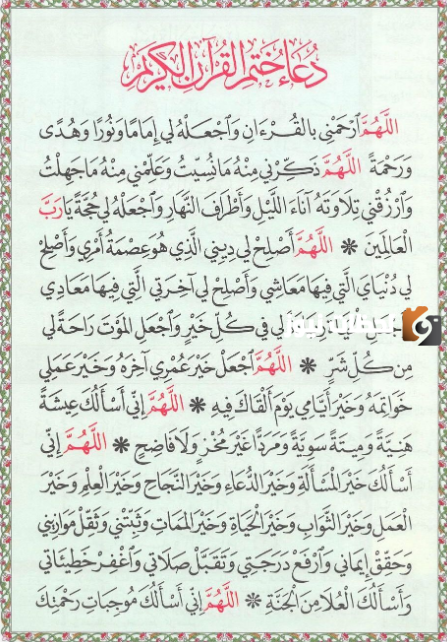 دُعَاءُ خَتْمِ القُرْآنِ الكَرِيْمِ
اللَّهُمَّ ٱرْحَمْنِي بالقُرْءَانِ وَٱجْعَلْهُ لِي إِمَامًا وَنُورًا وَهُدًى
وَرَحْمَةً اللَّهُمَّ ذَكِّرْنِي مِنْهُ مَانُسِّيتُ وَعَلِّمْنِي مِنْهُ مَاجَهِلْتُ
وَٱرْزُقْنِي تِلَاوَتَهُ آنَاءَ اللَّيْلِ وَأَطْرَافَ النَّهَارِ وَٱجْعَلْهُ لِي حُجَّةً يَارَبَّ
العَالَمِينَ * اللَّهُمَّ أَصْلِحْ لِي دِينِي الَّذِي هُوَ عِصْمَةُ أَمْرِي وَأَصْلِحْ
لِي دُنْيَايَ الَّتِي فِيهَا مَعَاشِي وَأَصْلِحْ لِي آخِرَتِي الَّتِي فِيهَا مَعَادِي
لِي فِي كُلِّ خَيْرٍ وَٱجْعَلِ المَوْتَ رَاحَةً لِي
مِن كُلِّ شَرٍّ * اللَّهُمَّ ٱجْعَلْ خَيْرَ عُمْرِي آخِرَهُ وَخَيْرَ عَمَلِي
خَوَاتِمَهُ وَخَيْرَ أَيَّامِي يَوْمَ أَلْقَاكَ فِيهِ * اللَّهُمَّ إِنِّي أَسْأَلُكَ عِيشَةً
هَنِيَّةً وَمِيتَةً سَوِيَّةً وَمَرَدًّا غَيْرَ مُخْزٍ وَلَا فَاضِحٍ * اللَّهُمَّ إِنِّي
أَسْأَلُكَ خَيْرَ المَسْأَلَةِ وَخَيْرَ الدُّعَاءِ وَخَيْرَ النَّجَاحِ وَخَيْرَ العِلْمِ وَخَيْرَ
العَمَلِ وَخَيْرَ الثَّوَابِ وَخَيْرَ الحَيَاةِ وَخَيْرَ المَمَاتِ وَثَبِّتْنِي وَثَقِّلْ مَوَازِينِي
وَحَقِّقْ إِيمَانِي وَٱرْفَعْ دَرَجَتِي وَتَقَبَّلْ صَلَاتِي وَٱغْفِرْ خَطِيئَاتِي
وَأَسْأَلُكَ العُلَا مِنَ الجَنَّةِ * اللَّهُمَّ إِنِّي أَسْأَلُكَ مُوجِبَاتِ رَحْمَتِكَ